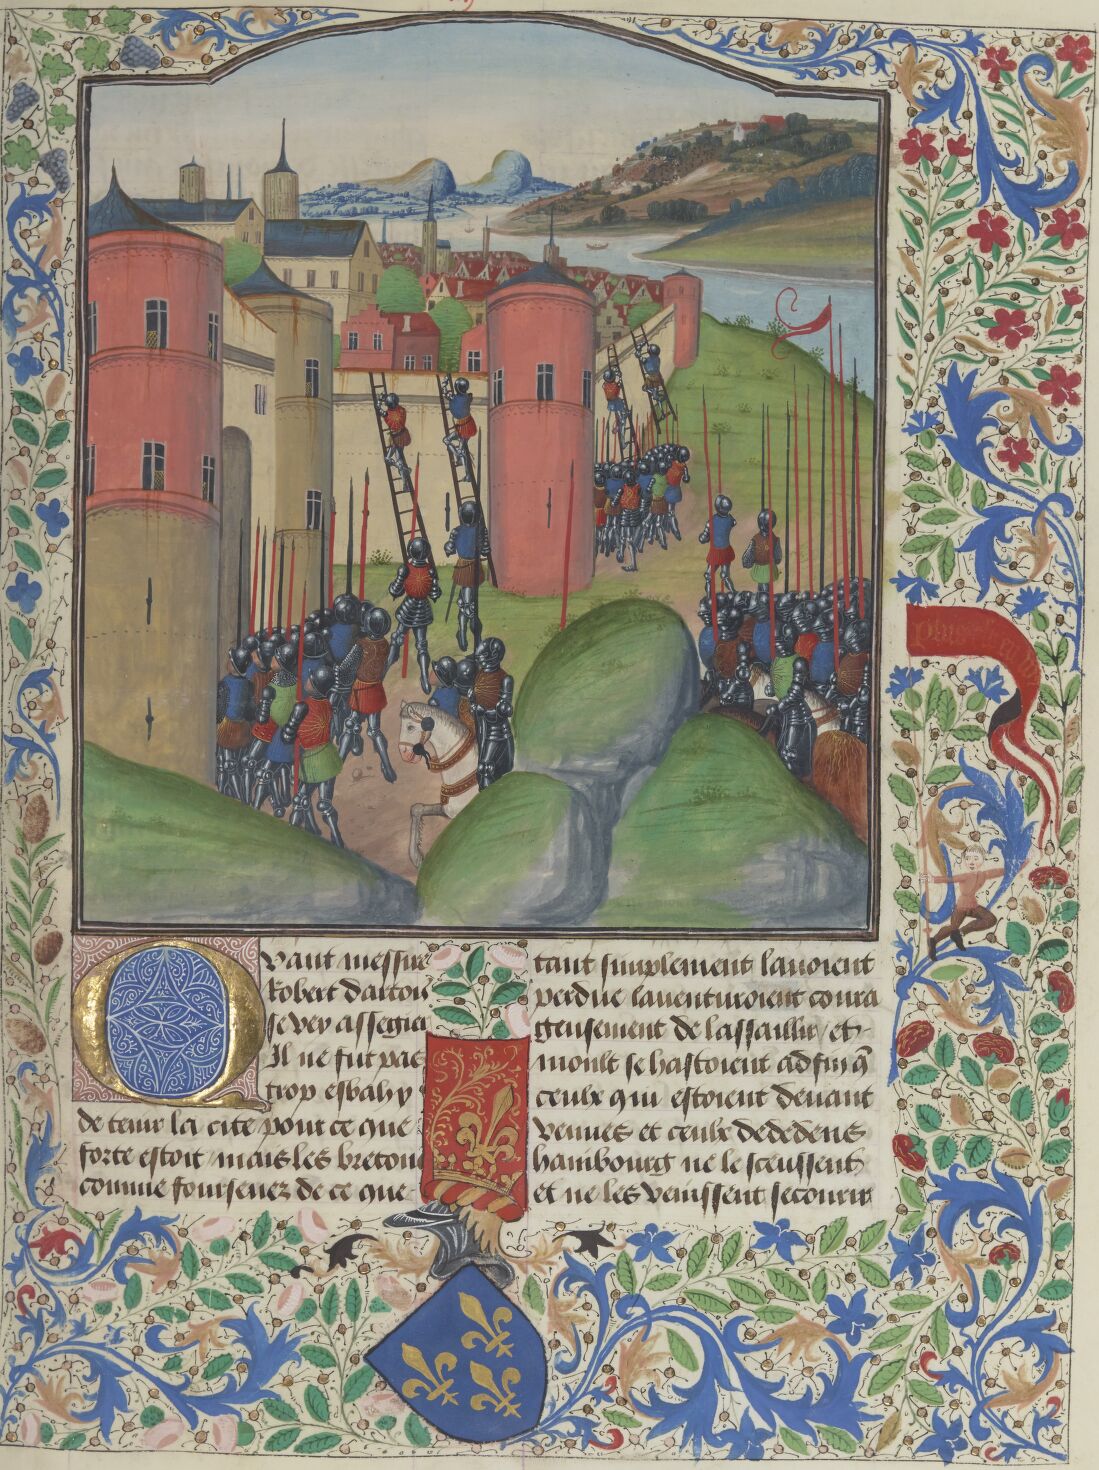 Quant messire
Robert dartois
se vey assegier
Il ne fut pas
trop esbahy
de tenir la cite pour ce que
forte estoit / mais les bretons
comme foursenez de ce que
tant simplement lauoient
perdue lauenturoient coura
geusement de lassaillir / et
moult se hastoient adfin q̄
ceulx qui estoient deuant
vennes et ceulx dedens
hainbourg ne le sceussent
et ne les venissent secourir